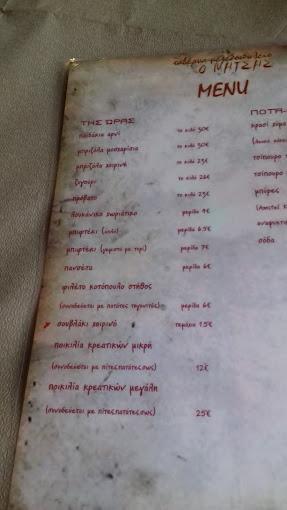 Ο ΜΗΤΣΗΣ
MENU
ΤΗΣ ΩΡΑΣ
παϊδάκια αρνί το κιλό 30€
μπριζόλα μοσχαρίσια το κιλό 30€
μπριζόλα χοιρινή το κιλό 25€
ζυγούρι το κιλό 28€
πρόβατο το κιλό 25€
λουκάνικο χωριάτικο μερίδα 9€
μπιφτέκι μερίδα 6.5€
μπιφτέκι (γεμιστό με τυρί) μερίδα 7€
πανσέτα μερίδα 6€
φιλέτο κοτόπουλο στήθος
(συνοδεύεται με πατάτες τηγανητές) μερίδα 6€
σουβλάκι χοιρινό τεμάχιο 1.5€
ποικιλία κρεατικών μικρή
(συνοδεύεται με πίτες,πατάτες,σως) 12€
ποικιλία κρεατικών μεγάλη
(συνοδεύεται με πίτες,πατάτες,σως) 25€
ΠΟΤΑ-
κρασί χύμα
τσίπουρο
τσίπουρο
μπύρες
(Amstel
αναψυκτι
σόδα